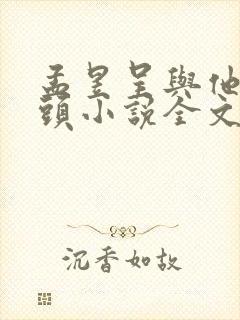 孟昱呈與他
頭小說全文
沉香如故